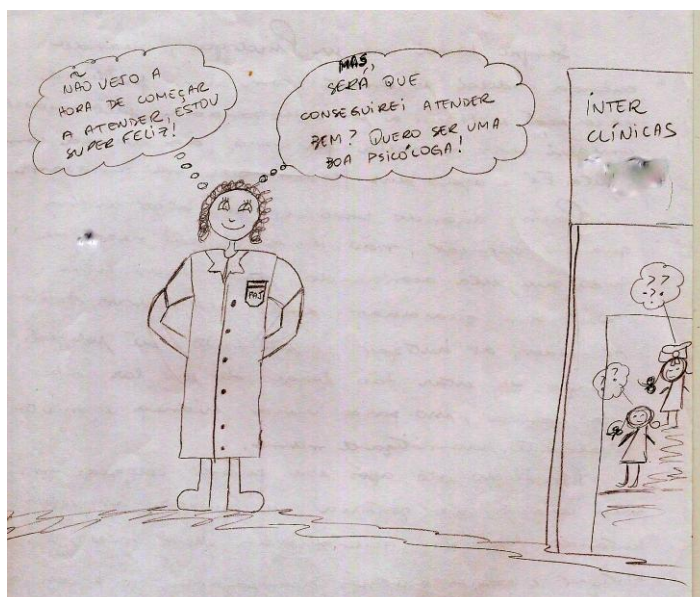 NÃO VEJO A
HORA DE COMEÇAR
A ATENDER, ESTOU
SUPER FELIZ!
MAS,
SERÁ QUE
CONSEGUIREI ATENDER
BEM? QUERO SER UMA
BOA PSICÓLOGA!
INTER
CLÍNICAS
FAJ
? ?
? ?
?